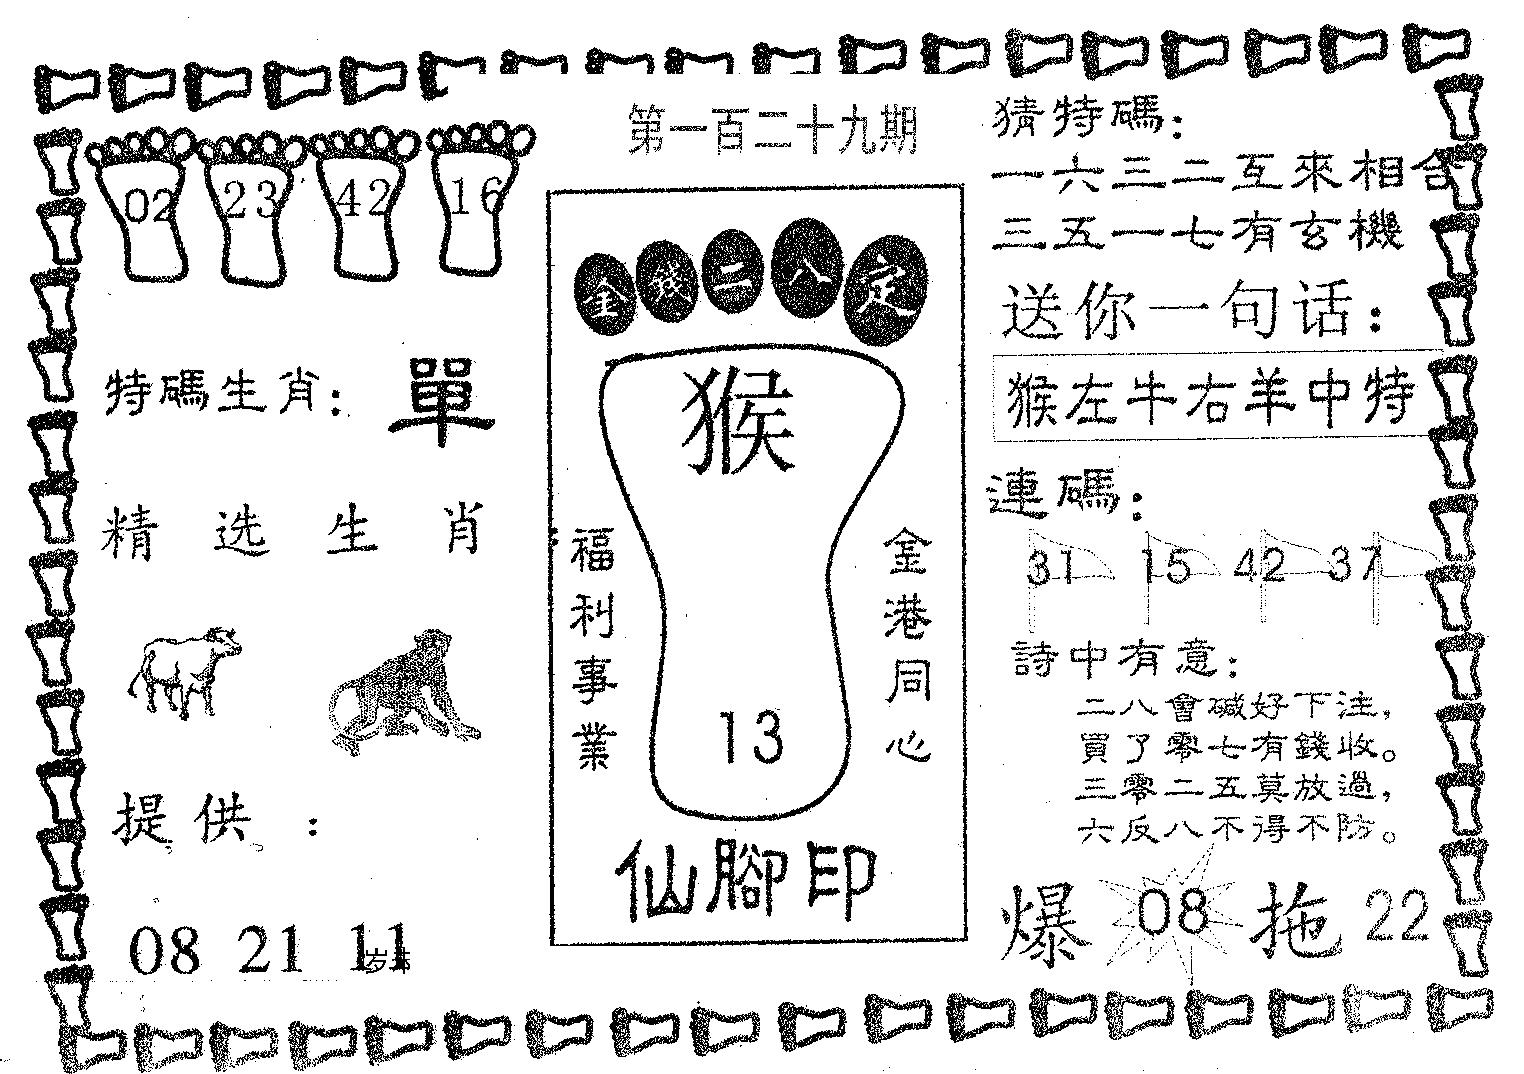 第一百二十九期
02 23 42 16
特碼生肖：單
精选生肖：
提供：
08 21 11
金發二八定
猴
13
福利事業
金港同心
仙腳印
猜特碼：
一六三二互來相合
三五一七有玄機
送你一句话：
猴左牛右羊中特
連碼：
31 15 42 37
詩中有意：
二八會碱好下注，
買了零七有錢收。
三零二五莫放過，
六反八不得不防。
爆 08 拖 22